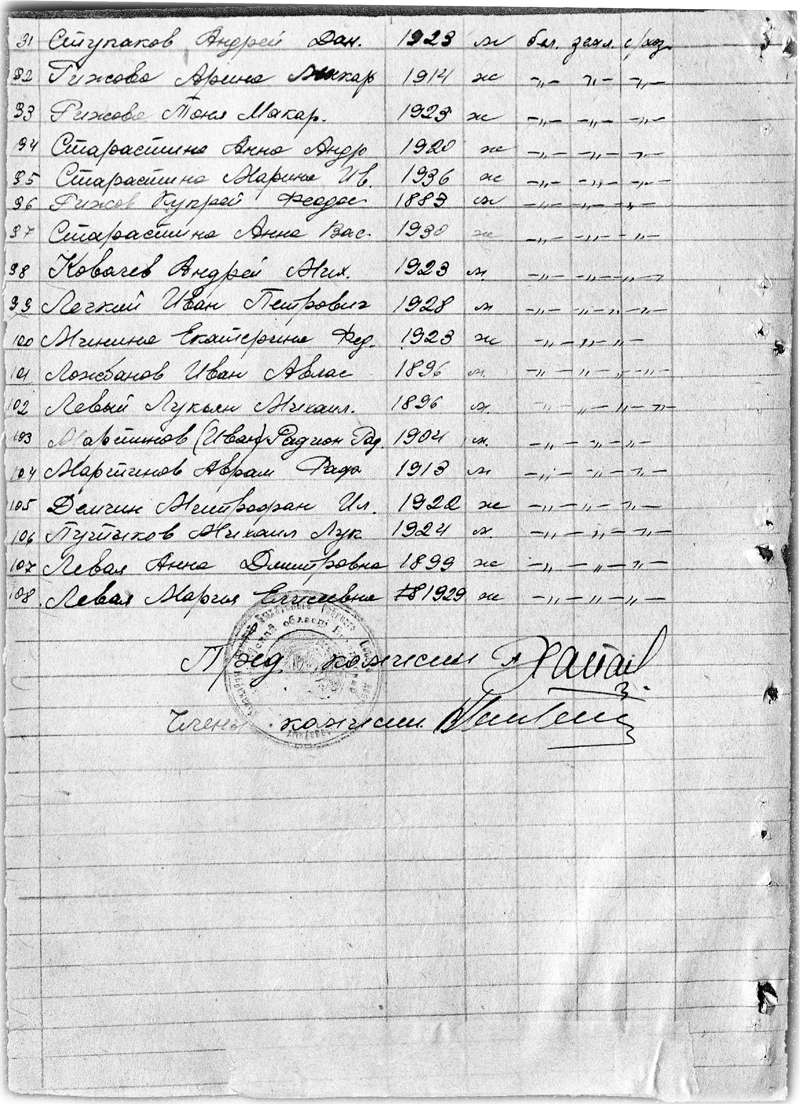 91 Ступаков Андрей Дан. 1923 м бел. зем. с/хоз.
92 Рижова Арина Макар 1914 ж -„- -„- -„-
93 Рижова Тоня Макар. 1923 ж -„- -„- -„-
94 Старастина Анна Андр 1920 ж -„- -„- -„-
95 Старастина Марина Ив. 1936 ж -„- -„- -„-
96 Рижов Купрей Федос 1883 м -„- -„- -„-
97 Старастина Анна Вас. 1930 ж -„- -„- -„-
98 Ковачев Андрей Мих. 1923 м -„- -„- -„-
99 Легкий Иван Петрович 1928 м -„- -„- -„-
100 Минина Екатерина Фед. 1923 ж -„- -„- -„-
101 Ложбанов Иван Авлас 1896 м. -„- -„- -„-
102 Левый Лукьян Михаил. 1896 м. -„- -„- -„-
103 Мартинов (Иван) Радион Рад. 1904 м. -„- -„- -„-
104 Мартинов Аврам Радо 1913 м -„- -„- -„-
105 Демчин Митрофан Ил. 1922 ж -„- -„- -„-
106 Путиков Михаил Лук 1924 м. -„- -„- -„-
107 Левая Анна Дмитровна 1899 ж -„- -„- -„-
108. Левая Мария Елисеевна 1929 ж -„- -„- -„-
Пред. комисии
Члены комисии.